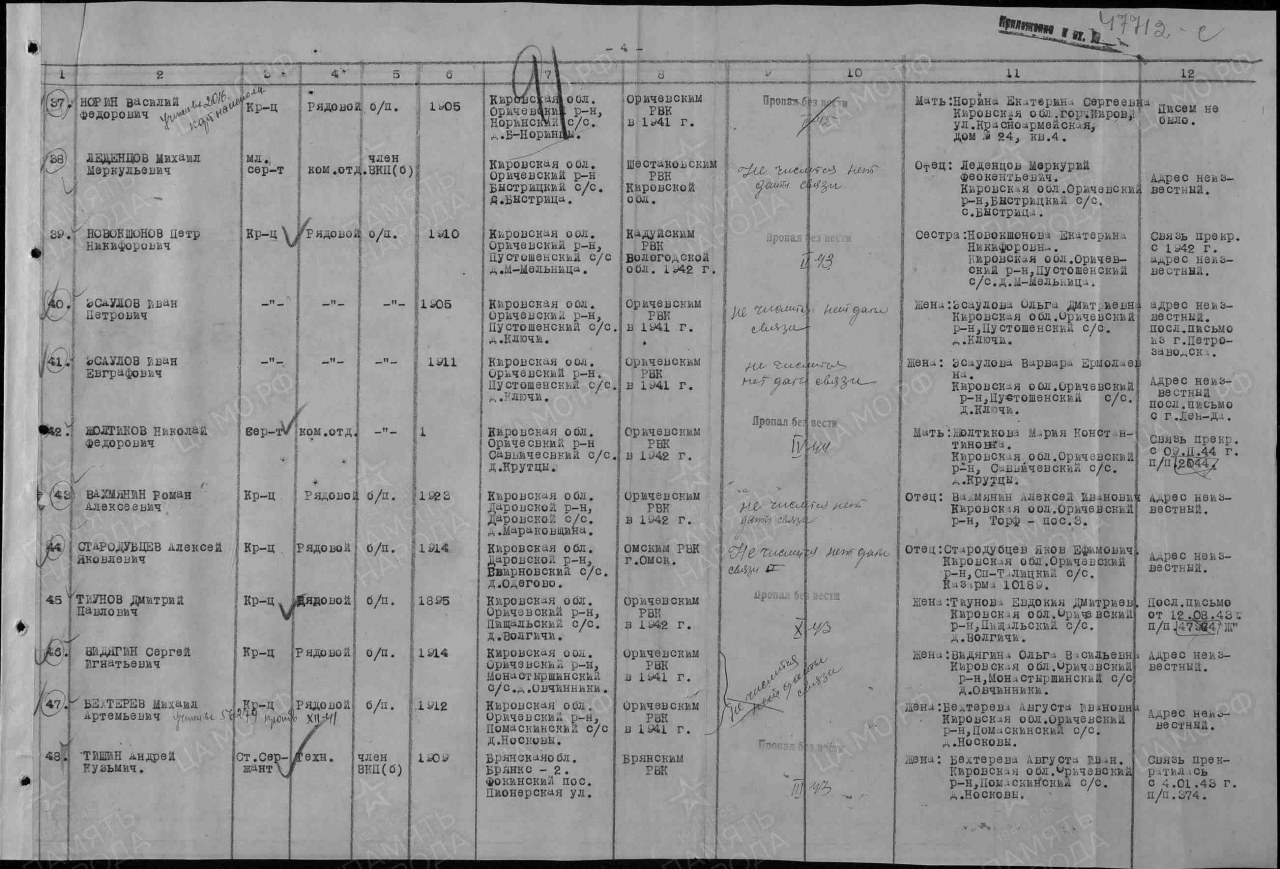 Приложение к вх. №
47712-с
- 4 -
91
1 2 3 4 5 6 7 8 9 10 11 12
37. НОРИН Василий Федорович Кр-ц Рядовой б/п. 1905
Кировская обл.
Оричевский р-н,
Норинский с/с.
д.Б-Норинцы.
Оричевским
РВК
в 1941 г.
Пропал без вести
Мать:Норина Екатерина Сергеевна
Кировская обл.гор.Киров,
ул.Красноармейская,
дом № 24, кв.4.
Писем не
было.
38 ЛЕДЕНЦОВ Михаил Меркульевич
мл.
сер-т
ком.отд.
член
ВКП(б)
Кировская обл.
Оричевский р-н
Быстрицкий с/с.
с.Быстрица.
Шестаковским
РВК
Кировской
обл.
Не числится нет
даты связи
Отец: Леденцов Меркурий
Феокентьевич.
Кировская обл.Оричевский
р-н,Быстрицкий с/с.
с.Быстрица.
Адрес неиз-
вестный.
39. НОВОКШОНОВ Петр Никифорович Кр-ц Рядовой б/п. 1910
Кировская обл.
Оричевский р-н,
Пустошенский с/с
д.М-Мельница.
Кадуйским
РВК
Вологодской
обл. 1942 г.
Пропал без вести
II 43
Сестра:Новокшонова Екатерина
Никифоровна.
Кировская обл.Оричев-
ский р-н,Пустошенский
с/с.д.М-Мельница.
Связь прекр.
с 1942 г.
адрес неиз-
вестный.
40. ЭСАУЛОВ Иван Петрович -"- -"- -"- 1905
Кировская обл.
Оричевский р-н,
Пустошенский с/с.
д.Ключи.
Оричевским
РВК
в 1941 г.
не числится нет даты
связи
Жена:Эсаулова Ольга Дмитриевна
Кировская обл.Оричевский
р-н,Пустошенский с/с.
д.Ключи.
адрес неиз-
вестный.
посл.письмо
из г.Петро-
заводска.
41. ЭСАУЛОВ Иван Евграфович -"- -"- -"- 1911
Кировская обл.
Оричевский р-н.
Пустошенский с/с.
д.Ключи.
Оричевским
РВК
в 1941 г.
не числится
нет даты связи
Жена: Эсаулова Варвара Ермолаев
на.
Кировская обл.Оричевский
р-н,Пустошенский с/с.
д.Ключи.
Адрес неиз-
вестный
посл.письмо
с г.Лен-да.
42. ЖОЛТИКОВ Николай Федорович сер-т ком.отд. -"- 1
Кировская обл.
Оричесвкий р-н
Савьичесвкий с/с.
д.Крутцы.
Оричевским
РВК
в 1942 г.
Пропал без вести
IV 44
Мать:Жолтикова Мария Констан-
тиновна.
Кировская обл.Оричевский
р-н, Савьичевский с/с.
д.Крутцы.
Связь прекр.
с 09.II.44 г.
п/п 2044.
43 ВАХМЯНИН Роман Алексеевич Кр-ц Рядовой б/п. 1923
Кировская обл.
Даровской р-н,
Даровской с/с.
д.Мараковщина.
Оричевским
РВК
в 1942 г.
не числится нет
даты связи
Отец: Вахмянин Алексей Иванович
Кировская обл.Оричевский
р-н, Торф - пос.3.
Адрес неиз-
вестный.
44 СТАРОДУБЦЕВ Алексей Яковлевич Кр-ц Рядовой б/п. 1914
Кировская обл.
Даровской р-н,
Ввирновский с/с.
д.Одегово.
Омским РВК
г.Омск.
Не числится нет даты
связи
Отец:Стародубцев Яков Ефимович.
Кировская обл.Оричевский
р-н,Сп-Талицкий с/с.
Казарма 10189.
Адрес неиз-
вестный.
45 ТИУНОВ Дмитрий Павлович Кр-ц Рядовой б/п. 1895
Кировская обл.
Оричевский р-н,
Пищальский с/с.
д.Волгичи.
Оричевским
РВК
в 1942 г.
Пропал без вести
X 43
Жена:Тиунова Евдокия Дмитриев.
Кировская обл.Оричевский
р-н,Пищальский с/с.
д.Волгичи.
Посл.письмо
от 12.08.43 г.
46. ВИДЯГИН Сергей Игнатьевич Кр-ц Рядовой б/п. 1914
Кировская обл.
Оричевский р-н,
Монастыршинский
с/с.д.Овчинники.
Оричевским
РВК
в 1941 г.
Не числится
нет даты
связи
Жена:Видягина Ольга Васильевна
Кировская обл.Оричевский
р-н,Монастыршинский с/с
д.Овчинники.
Адрес неиз-
вестный.
47. БЕХТЕРЕВ Михаил Артемьевич Кр-ц Рядовой б/п. 1912
Кировская обл.
Оричевский р-н,
Помаскинский с/с
д.Носковы.
Оричевским
РВК
в 1941 г.
Жена:Бехтерева Августа Ивановна
Кировская обл.Оричевский
р-н,Помаскинский с/с.
д.Носковы.
Адрес неиз-
вестный.
48. ТИШИН Андрей Кузьмич.
Ст.Сер-
жант
техн.
член
ВКП(б)
1909
Брянскаяобл.
Брянке - 2.
Фокинский пос.
Пионерская ул.
Брянским
РВК
Пропал без вести
III 43
Жена: Бехтерева Августа Иван.
Кировская обл.Оричевский
р-н,Помаскинский с/с.
д.Носковы.
Связь прек-
ратилась
с 4.01.43 г.
п/п.374.